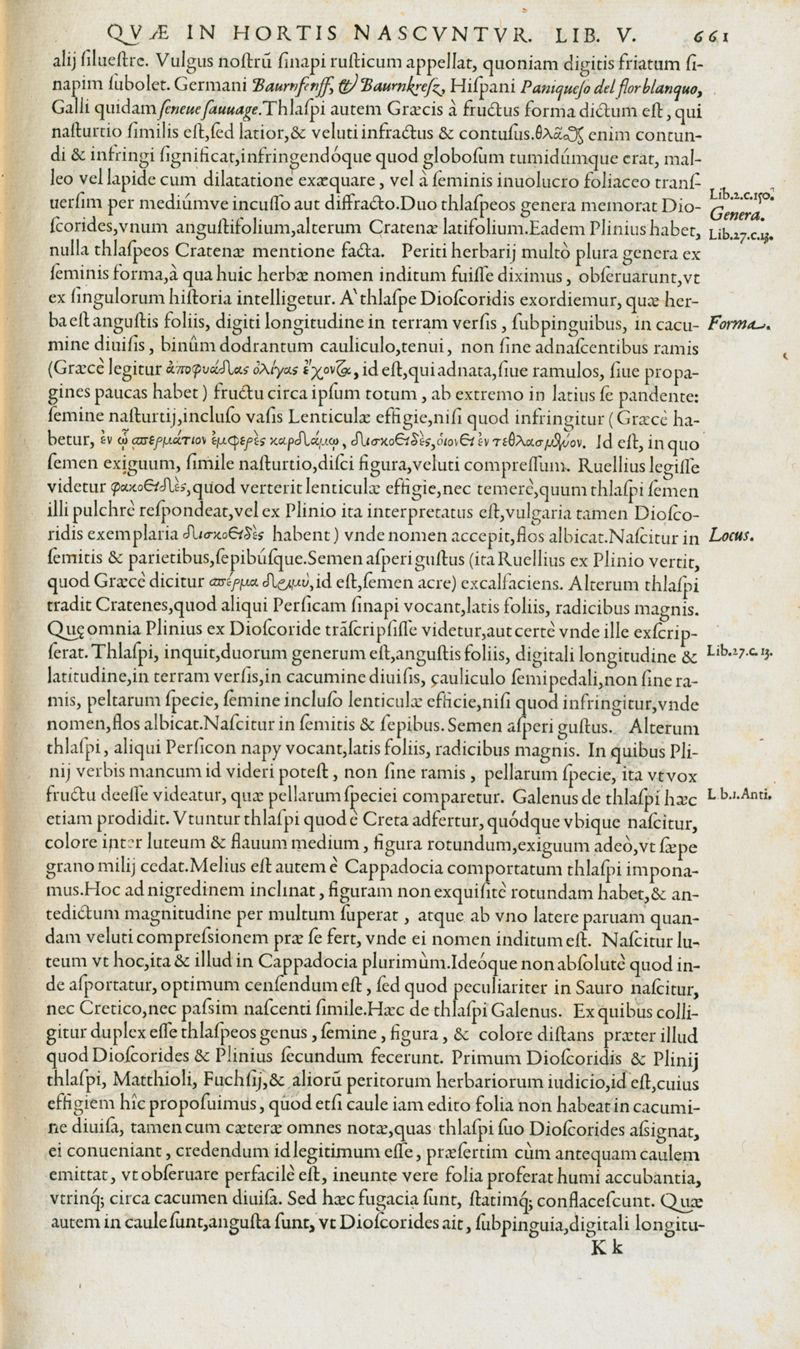 QVÆ IN HORTIS NASCVNTVR. LIB. V. 661
alij ſilueſtre. Vulgus noſtrũ ſinapi ruſticum appellat, quoniam digitis friatum ſi-
napim ſubolet. Germani Baurnſenff, & Baurnkreſz, Hiſpani Paniqueſo del flor blanquo,
Galli quidam ſeneue ſauuage. Thlaſpi autem Græcis à fructus forma dictum eſt, qui
naſturtio ſimilis eſt, ſed latior, & veluti infractus & contuſus. θλᾶϚ enim contun-
di & infringi ſignificat, infringendóque quod globoſum tumidúmque erat, mal-
leo vel lapide cum dilatatione exæquare, vel à ſeminis inuolucro foliaceo tranſ-
uerſim per mediúmve incuſſo aut diffracto. Duo thlaſpeos genera memorat Dio- Lib.2.c.150. Genera.
ſcorides, vnum anguſtifolium, alterum Cratenæ latifolium. Eadem Plinius habet, Lib.27.c.13.
nulla thlaſpeos Cratenæ mentione facta. Periti herbarij multò plura genera ex
ſeminis forma, à qua huic herbæ nomen inditum fuiſſe diximus, obſeruarunt, vt
ex ſingulorum hiſtoria intelligetur. A` thlaſpe Dioſcoridis exordiemur, quæ her-
ba eſt anguſtis foliis, digiti longitudine in terram verſis, ſubpinguibus, in cacu- Forma.
mine diuiſis, binûm dodrantum cauliculo, tenui, non ſine adnaſcentibus ramis
(Græcè legitur ἀποφυάδας ὀλίγας ἔχοντα, id eſt, qui adnata, ſiue ramulos, ſiue propa-
gines paucas habet) fructu circa ipſum totum, ab extremo in latius ſe pandente:
ſemine naſturtij, incluſo vaſis Lenticulæ effigie, niſi quod infringitur (Græcè ha-
betur, ἐν ᾧ σπερμάτιον ἐμφερὲς καρδάμῳ, δισκοειδὲς, οἱονεὶ ἐν τεθλασμένον. Id eſt, in quo
ſemen exiguum, ſimile naſturtio, diſci figura, veluti compreſſum. Ruellius legiſſe
videtur φακοειδὲς, quod verterit lenticulæ effigie, nec temerè, quum thlaſpi ſemen
illi pulchrè reſpondeat, vel ex Plinio ita interpretatus eſt, vulgaria tamen Dioſco-
ridis exemplaria δισκοειδὲς habent) vnde nomen accepit, flos albicat. Naſcitur in Locus.
ſemitis & parietibus, ſepibúſque. Semen aſperi guſtus (ita Ruellius ex Plinio vertit,
quod Græcè dicitur σπέρμα δριμύ, id eſt, ſemen acre) excalfaciens. Alterum thlaſpi
tradit Cratenes, quod aliqui Perſicam ſinapi vocant, latis foliis, radicibus magnis.
Quę omnia Plinius ex Dioſcoride trãſcripſiſſe videtur, aut certè vnde ille exſcrip-
ſerat. Thlaſpi, inquit, duorum generum eſt, anguſtis foliis, digitali longitudine & Lib.27.c.13.
latitudine, in terram verſis, in cacumine diuiſis, cauliculo ſemipedali, non ſine ra-
mis, peltarum ſpecie, ſemine incluſo lenticulæ efficie, niſi quod infringitur, vnde
nomen, flos albicat. Naſcitur in ſemitis & ſepibus. Semen aſperi guſtus. Alterum
thlaſpi, aliqui Perſicon napy vocant, latis foliis, radicibus magnis. In quibus Pli-
nij verbis mancum id videri poteſt, non ſine ramis, pellarum ſpecie, ita vt vox
fructu deeſſe videatur, quæ pellarum ſpeciei comparetur. Galenus de thlaſpi hæc L b.1.Anti.
etiam prodidit. Vtuntur thlaſpi quod è Creta adfertur, quódque vbique naſcitur,
colore inter luteum & flauum medium, figura rotundum, exiguum adeò, vt ſæpe
grano milij cedat. Melius eſt autem è Cappadocia comportatum thlaſpi impona-
mus. Hoc ad nigredinem inclinat, figuram non exquiſitè rotundam habet, & an-
tedictum magnitudine per multum ſuperat, atque ab vno latere paruam quan-
dam veluti compreſsionem præ ſe fert, vnde ei nomen inditum eſt. Naſcitur lu-
teum vt hoc, ita & illud in Cappadocia plurimùm. Ideóque non abſolutè quod in-
de aſportatur, optimum cenſendum eſt, ſed quod peculiariter in Sauro naſcitur,
nec Cretico, nec paſsim naſcenti ſimile. Hæc de thlaſpi Galenus. Ex quibus colli-
gitur duplex eſſe thlaſpeos genus, ſemine, figura, & colore diſtans præter illud
quod Dioſcorides & Plinius ſecundum fecerunt. Primum Dioſcoridis & Plinij
thlaſpi, Matthioli, Fuchſij, & aliorũ peritorum herbariorum iudicio, id eſt, cuius
effigiem hîc propoſuimus, quod etſi caule iam edito folia non habeat in cacumi-
ne diuiſa, tamen cum cæteræ omnes notæ, quas thlaſpi ſuo Dioſcorides aſsignat,
ei conueniant, credendum id legitimum eſſe, præſertim cùm antequam caulem
emittat, vt obſeruare perfacilè eſt, ineunte vere folia proferat humi accubantia,
vtrinq; circa cacumen diuiſa. Sed hæc fugacia ſunt, ſtatimq; conflaceſcunt. Quæ
autem in caule ſunt, anguſta ſunt, vt Dioſcorides ait, ſubpinguia, digitali longitu-
Kk